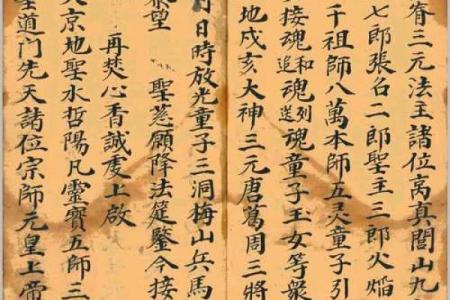 三元法主諸位高真閭山九
七郎張召二郎聖主三郎火焰
千祖師八萬本師五灵童子引
接魂和列追送魂童子玉女等衆
地戌亥大神三元唐葛周三將
日時放光童子三洞梅山兵馬
望 聖慈願降法筵鑒今接
再焚心香誠虔上啟
京地聖水哲陽凡靈寶五師三
聖道門先天諸位宗師元皇上帝